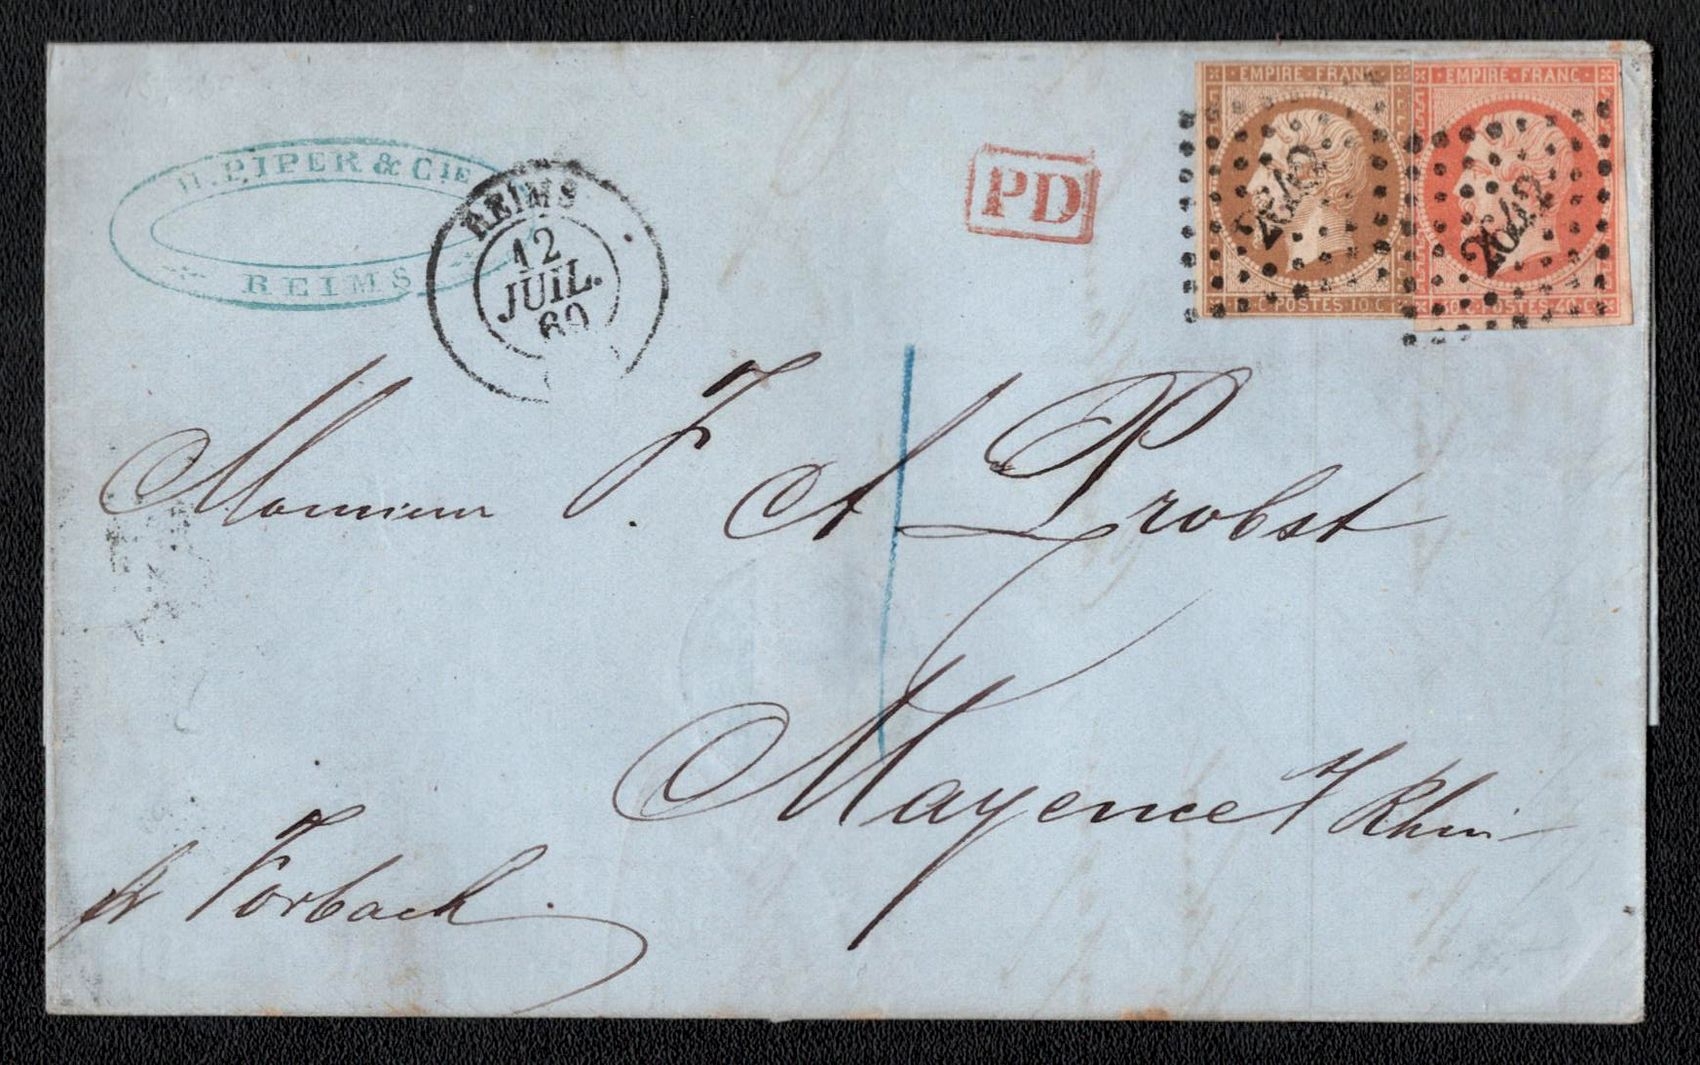 H. PIPER & CIE
REIMS
REIMS
12
JUIL.
60
PD
EMPIRE · FRANC ·
2642
10 C · POSTES 10 C
EMPIRE · FRANC ·
2642
40 C · POSTES 40 C
Monsieur F. A Probst
Mayence s/ Rhin
pr Forbach.